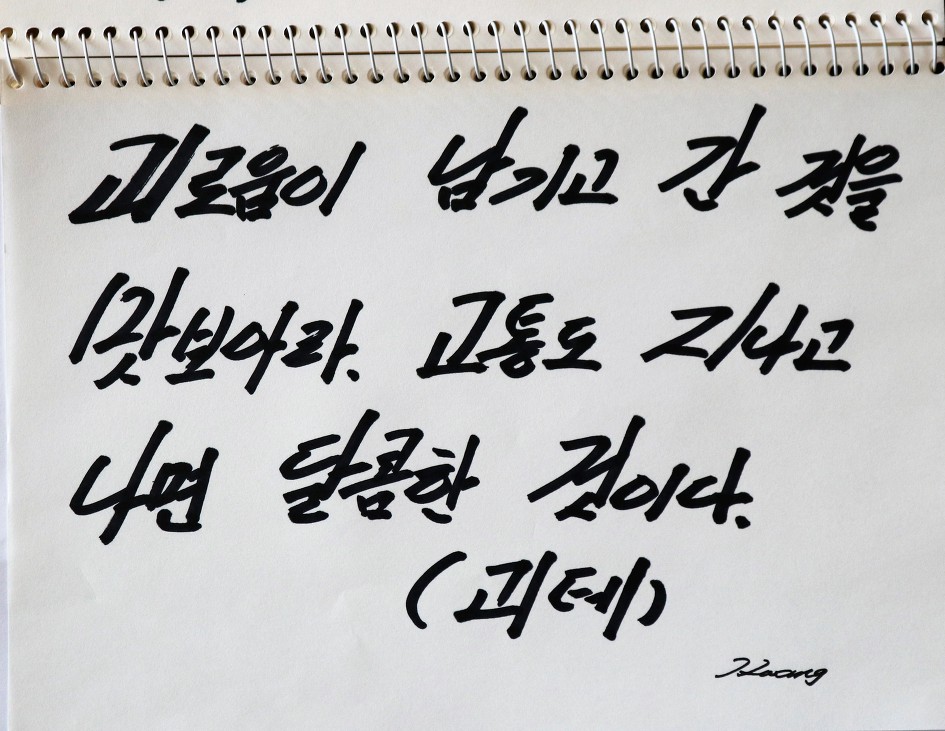 괴로움이 남기고 간 것을
맛보아라. 고통도 지나고
나면 달콤한 것이다.
(괴테)